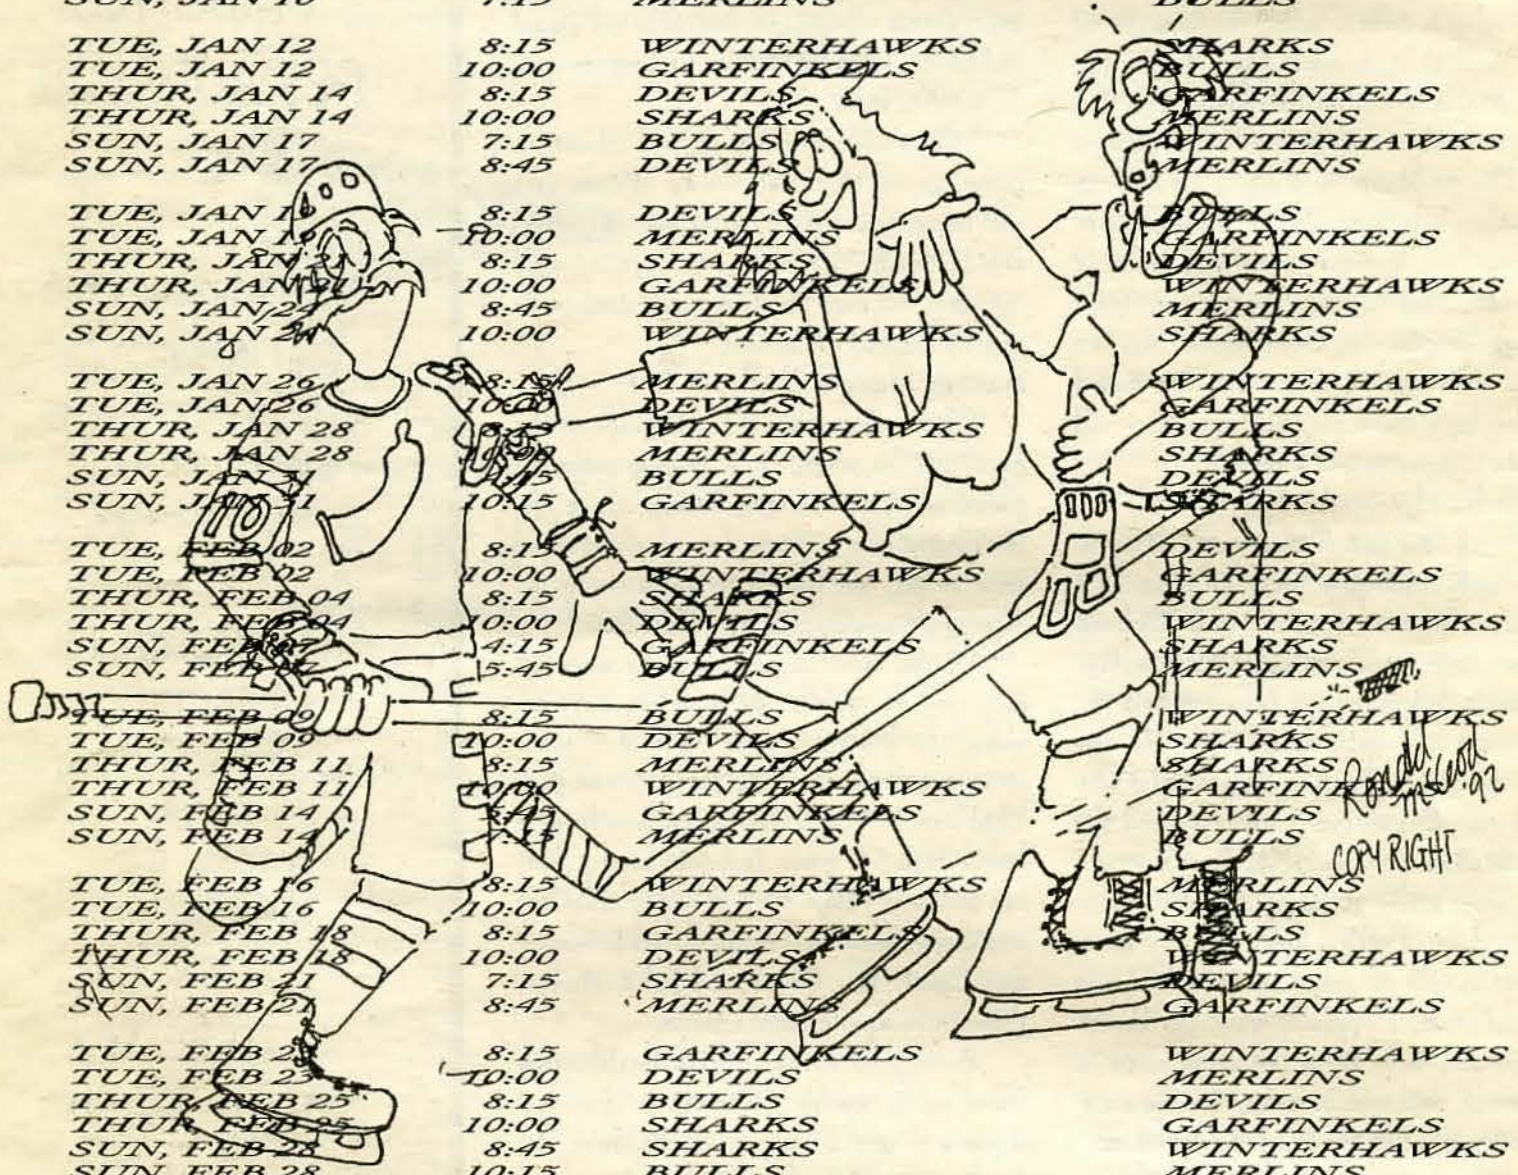 SUN, JAN 10 7:15 MERLINS BULLS
TUE, JAN 12 8:15 WINTERHAWKS SHARKS
TUE, JAN 12 10:00 GARFINKELS BULLS
THUR, JAN 14 8:15 DEVILS GARFINKELS
THUR, JAN 14 10:00 SHARKS MERLINS
SUN, JAN 17 7:15 BULLS WINTERHAWKS
SUN, JAN 17 8:45 DEVILS MERLINS
TUE, JAN 8:15 DEVILS BULLS
TUE, JAN 10:00 MERLINS GARFINKELS
THUR, JAN 21 8:15 SHARKS DEVILS
THUR, JAN 21 10:00 GARFINKELS WINTERHAWKS
SUN, JAN 24 8:45 BULLS MERLINS
SUN, JAN 24 10:00 WINTERHAWKS SHARKS
TUE, JAN 26 8:15 MERLINS WINTERHAWKS
TUE, JAN 26 10:00 DEVILS GARFINKELS
THUR, JAN 28 WINTERHAWKS BULLS
THUR, JAN 28 MERLINS SHARKS
SUN, JAN 31 BULLS DEVILS
SUN, JAN 31 10:15 GARFINKELS SHARKS
10
TUE, FEB 02 8:15 MERLINS DEVILS
TUE, FEB 02 10:00 WINTERHAWKS GARFINKELS
THUR, FEB 04 8:15 SHARKS BULLS
THUR, FEB 04 10:00 DEVILS WINTERHAWKS
SUN, FEB 07 4:15 GARFINKELS SHARKS
SUN, FEB 5:45 BULLS MERLINS
TUE, FEB 09 8:15 BULLS WINTERHAWKS
TUE, FEB 09 10:00 DEVILS SHARKS
THUR, FEB 11 8:15 MERLINS SHARKS
THUR, FEB 11 10:00 WINTERHAWKS GARFINKELS
SUN, FEB 14 GARFINKELS DEVILS
SUN, FEB 14 7:15 MERLINS BULLS
Ronald McLeod '92
COPYRIGHT
TUE, FEB 16 8:15 WINTERHAWKS MERLINS
TUE, FEB 16 10:00 BULLS SHARKS
THUR, FEB 18 8:15 GARFINKELS BULLS
THUR, FEB 18 10:00 DEVILS WINTERHAWKS
SUN, FEB 21 7:15 SHARKS DEVILS
SUN, FEB 21 8:45 MERLINS GARFINKELS
TUE, FEB 23 8:15 GARFINKELS WINTERHAWKS
TUE, FEB 23 10:00 DEVILS MERLINS
THUR, FEB 25 8:15 BULLS DEVILS
THUR, FEB 25 10:00 SHARKS GARFINKELS
SUN, FEB 28 8:45 SHARKS WINTERHAWKS
SUN, FEB 28 10:15 BULLS MERLINS